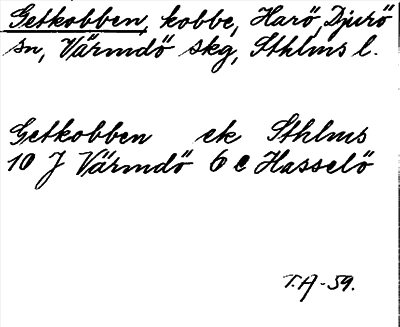 Getkobben, kobbe, Harö, Djurö
sn, Värmdö skg, Sthlms l.
Getkobben ek Sthlms
10 J Värmdö 6 e Hasselö
T.A -59.